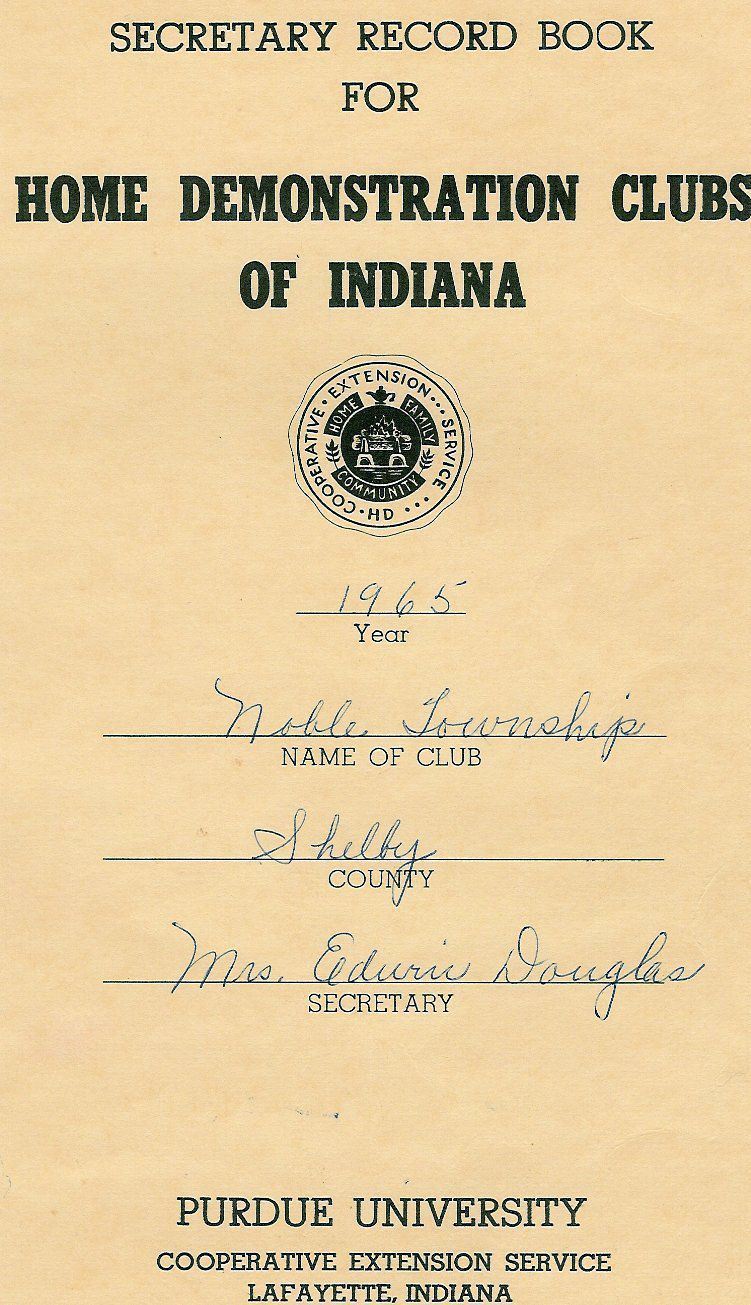 SECRETARY RECORD BOOK
FOR
HOME DEMONSTRATION CLUBS
OF INDIANA
COOPERATIVE • EXTENSION ••• SERVICE ••• HD •
HOME FAMILY
COMMUNITY
1965
Year
Noble Township
NAME OF CLUB
Shelby
COUNTY
Mrs. Edwin Douglas
SECRETARY
PURDUE UNIVERSITY
COOPERATIVE EXTENSION SERVICE
LAFAYETTE, INDIANA